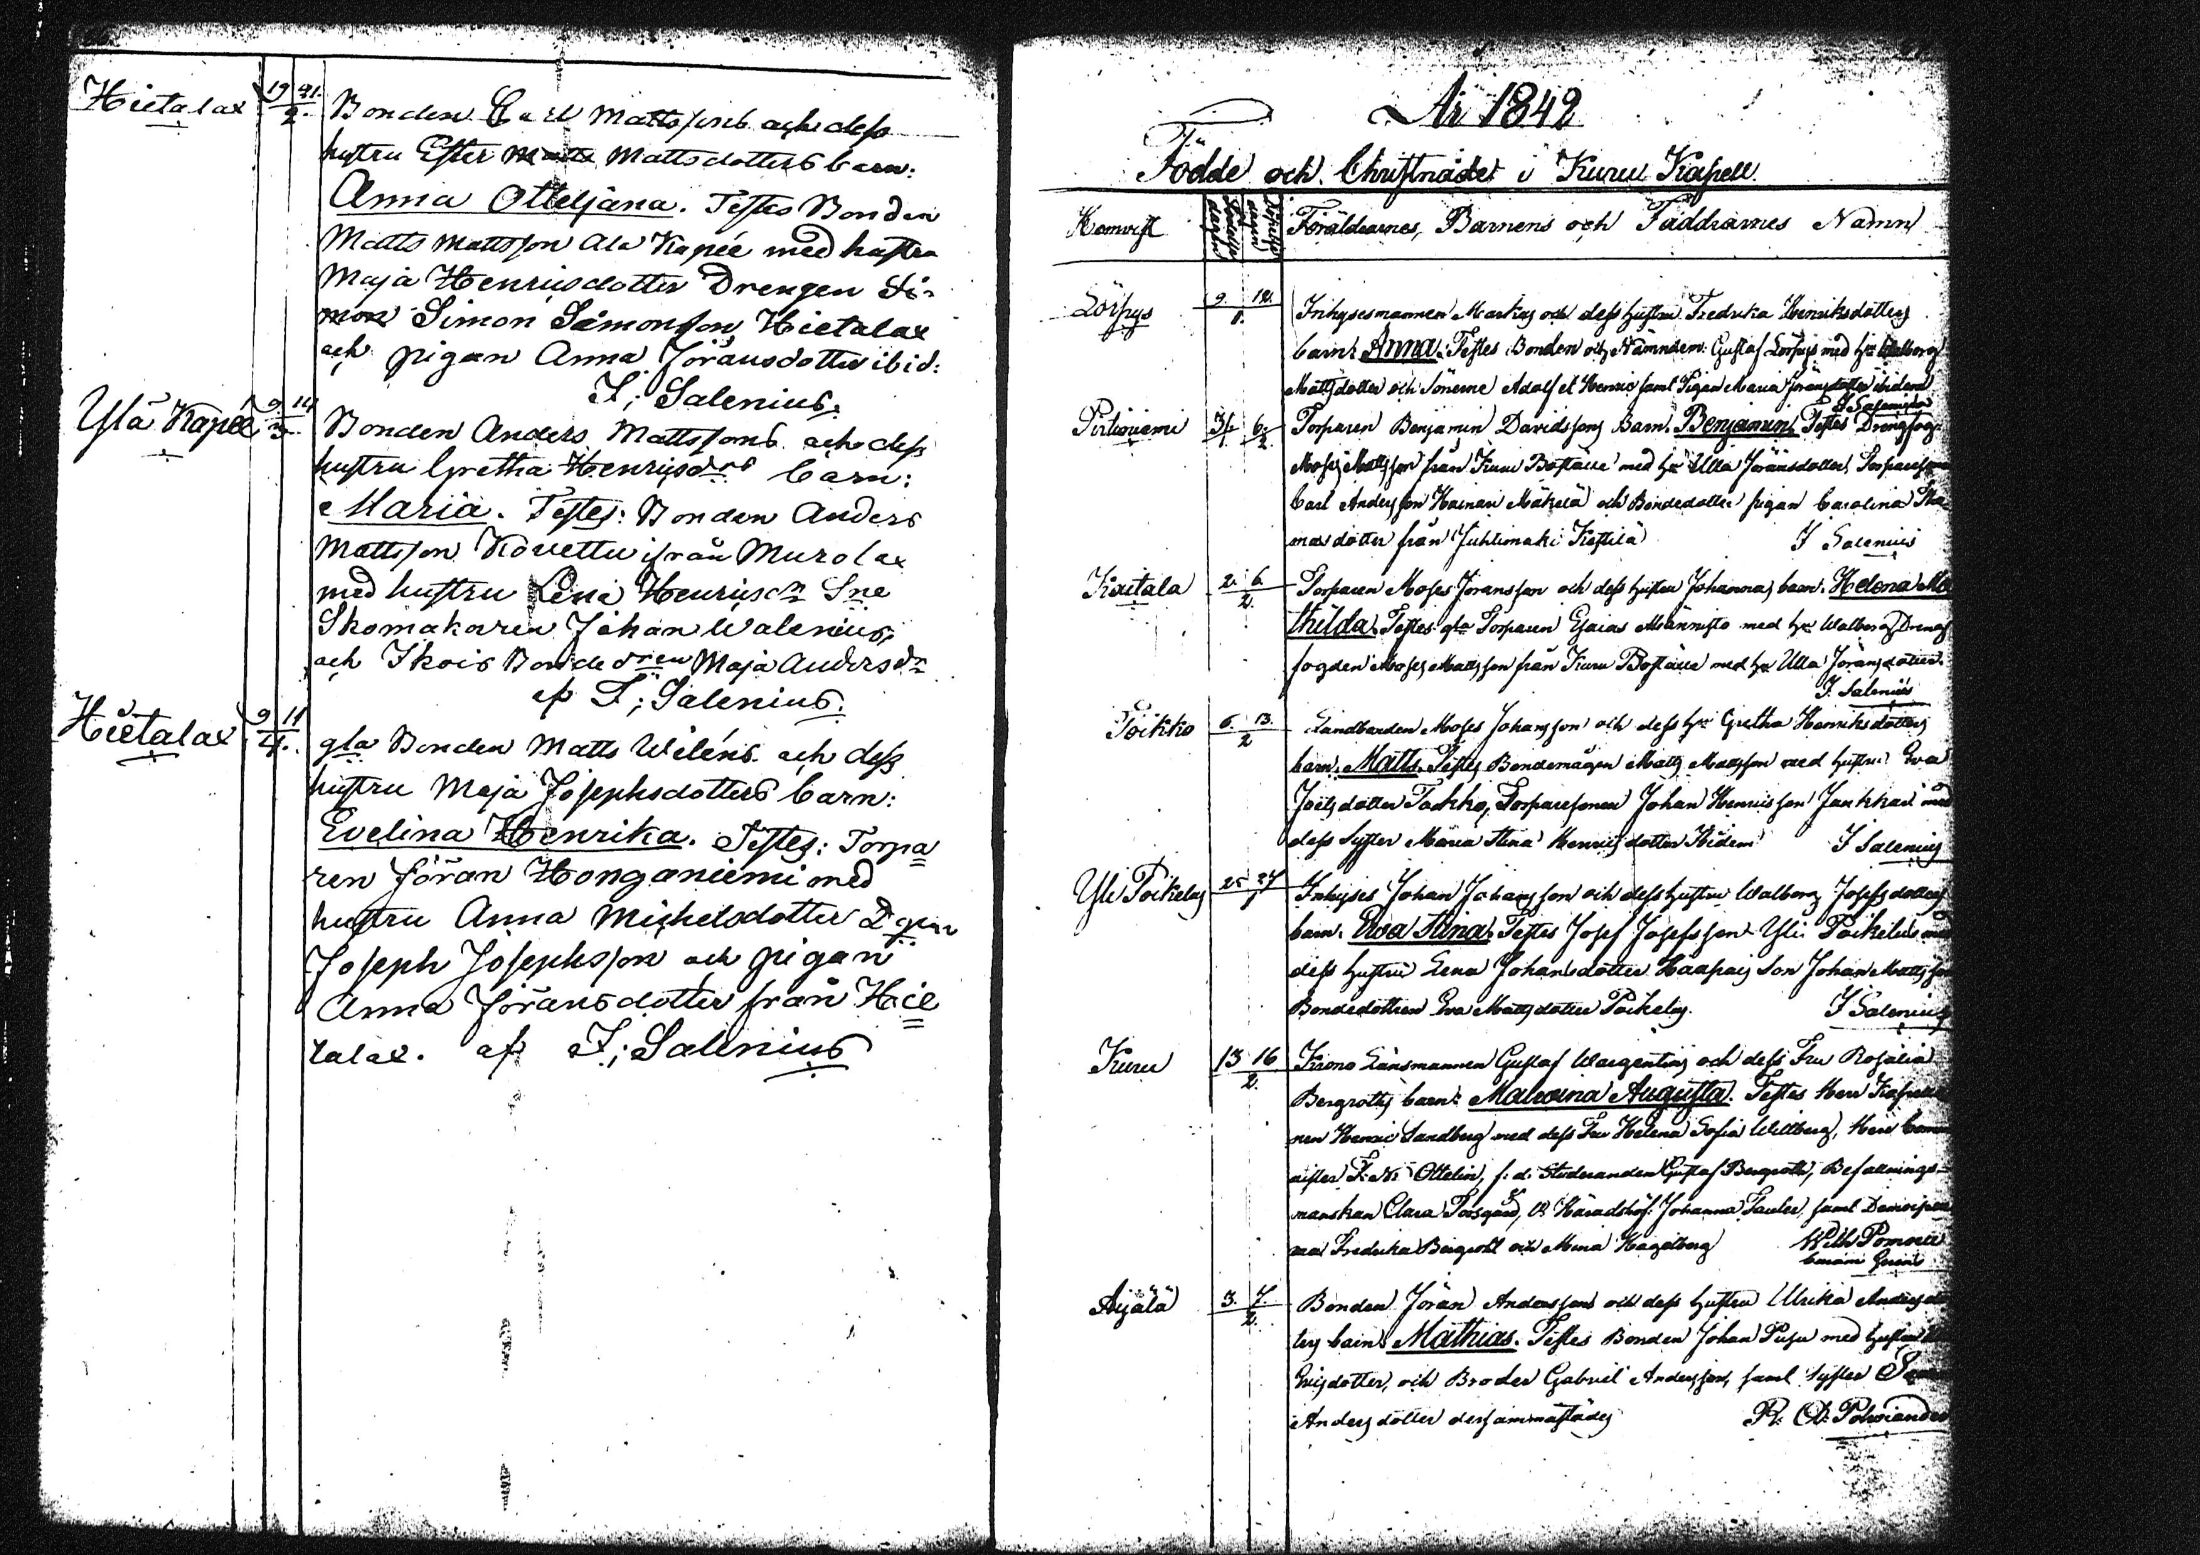 Hietalax 19 21. 2. Bonden Carl Mattssons och dess
hustru Ester Mattsdotters barn:
Anna Otteljana. Testes Bonden
Matts Mattsson Ala Kapée med hustru
Maja Henricsdotter Drengen Si-
mon Simon Simonsson Hietalax
och pigan Anna Jöransdotter ibid:
F; Salenius.
Ylä Kapee 9 14 3 Bonden Anders Mattssons och dess
hustru Gretha Henricsdrs barn:
Maria. Testes: Bonden Anders
Mattsson Kouettu ifrån Murolax
med hustru Lena Henricsdr Sne
Skomakaren Johan Walenius,
och Skois Bondedren Maja Andersdr
af F; Salenius.
Hietalax 9 11 4. gla Bonden Matts Wiléns och dess
hustru Maja Josephsdotters barn:
Evelina Henrika. Testes: Torpa
ren Jöran Honganiemi med
hustru Anna Michelsdotter Dgen
Joseph Josephsson och pigan
Anna Jöransdotter från Hie
talax. af F; Salenius
År 1842
Födde och Christnade i Kuru Kapell.
Hemvist Föräldrarnes, Barnens och Faddrarnes Namn
Lörpys 9. 12. 1. Inhysesmannen Markus och dess hustru Fredrika Henriksdotters
barn: Anna. Testes Bonden och Nämndem: Gustaf Lörpys med hu Walborg
Mattsdotter och Sönerne Adolf et Henric samt Pigan Maria Jöransdotter ibidem
F Salenius
Pirttiniemi 31 1 6. 2 Torparen Benjamin Davidssons Barn. Benjamin Testes Drengfog.
Moses Mattsson från Kuru Boställe med hu Ulla Jöransdotter, Torparesonen
Carl Andersson Hainari Mäkelä och Bondedotter pigan Carolina Tho
masdotter från Juhtimäki Kestilä F Salenius
Kaitala 2. 6. 2. Torparen Moses Jöransson och dess hustru Johannas barn. Helena Ma
thilda. Testes gla Torparen Esaias Männistö med hu Walborg, Dreng
fogden Moses Mattsson från Kuru Boställe med hu Ulla Jöransdotter.
F. Salenius
Poikko 6. 13. 2 Landbonden Moses Johansson och dess hu Gretha Henriksdotters
barn. Matts. Testes Bondemågen Matts Mattsson med hustru Eva
Joelsdotter Tackko, Torparesonen Johan Henricsson Jankkari med
dess Syster Maria Stina Henricsdotter Ibidem F Salenius
Yli Poikelus 25 27 1 Inhyses Johan Johansson och dess hustru Walborg Josefsdotters
barn. Eva Stina. Testes Josef Josefsson Yli Poikelus med
dess hustru Lena Johansdotter Haapais Son Johan Mattsson
Bondedottren Eva Mattsdotter Poikelus. F Salenius
Kuru 13 16 2. Krono Länsmannen Gustaf Wargentins och dess Fru Rosalia
Bergroths barn: Malvina Augusta. Testes Herr Kapella
nen Henric Sandberg med dess Fru Helena Sofia Willberg, Herr Comm
nister F: W: Ottelin, s. d. Studeranden Gustaf Bergroth, Befallnings-
manskan Clara Forsgård, V: Häradshöf: Johanna Tauler samt Demoisel
na Fredrika Bergroth och Mina Hagelberg Wilh Pomoell
Ayälä 3. 7. 2. Bonden Jöran Anderssons och dess hustru Ulrika Andersdot
ters barn Mathias. Testes Bonden Johan Pusu med hustru
Ericsdotter, och Broder Gabriel Andersson, samt Syster
Andersdotter dersammastädes P. A: Polviander